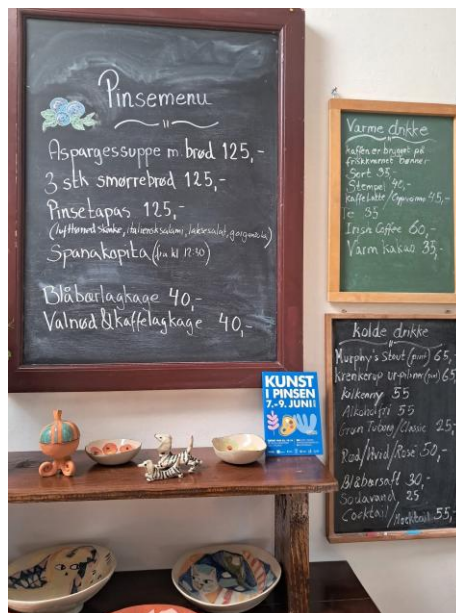 Pinsemenu
Aspargessuppe m. brød 125,-
3 stk smørrebrød 125,-
Pinsetapas 125,-
(lufttørret skinke, italiensk salami, laksesalat, gorgonzola)
Spanakopita (fra kl 12:30)
Blåbærlagkage 40,-
Valnød & kaffelagkage 40,-
Varme drikke
kaffen er brygget på
friskkværnet bønner
Sort 35,-
Stempel 40,-
kaffe latte / Cappuccino 45,-
Te 35
Irish Coffee 60,-
Varm kakao 35,-
Kolde drikke
Murphy's Stout (pint) 65,-
Krenkerup ur-pilsner (pint) 65
Kilkenny 55
Alkoholfri 55
Grøn Tuborg / Classic 25,-
Rød/Hvid/Rosé 50,-
Blåbærsaft 30,-
Sodavand 25,-
Cocktail / Mocktail 55,-
KUNST
I PINSEN
7.-9. JUNI